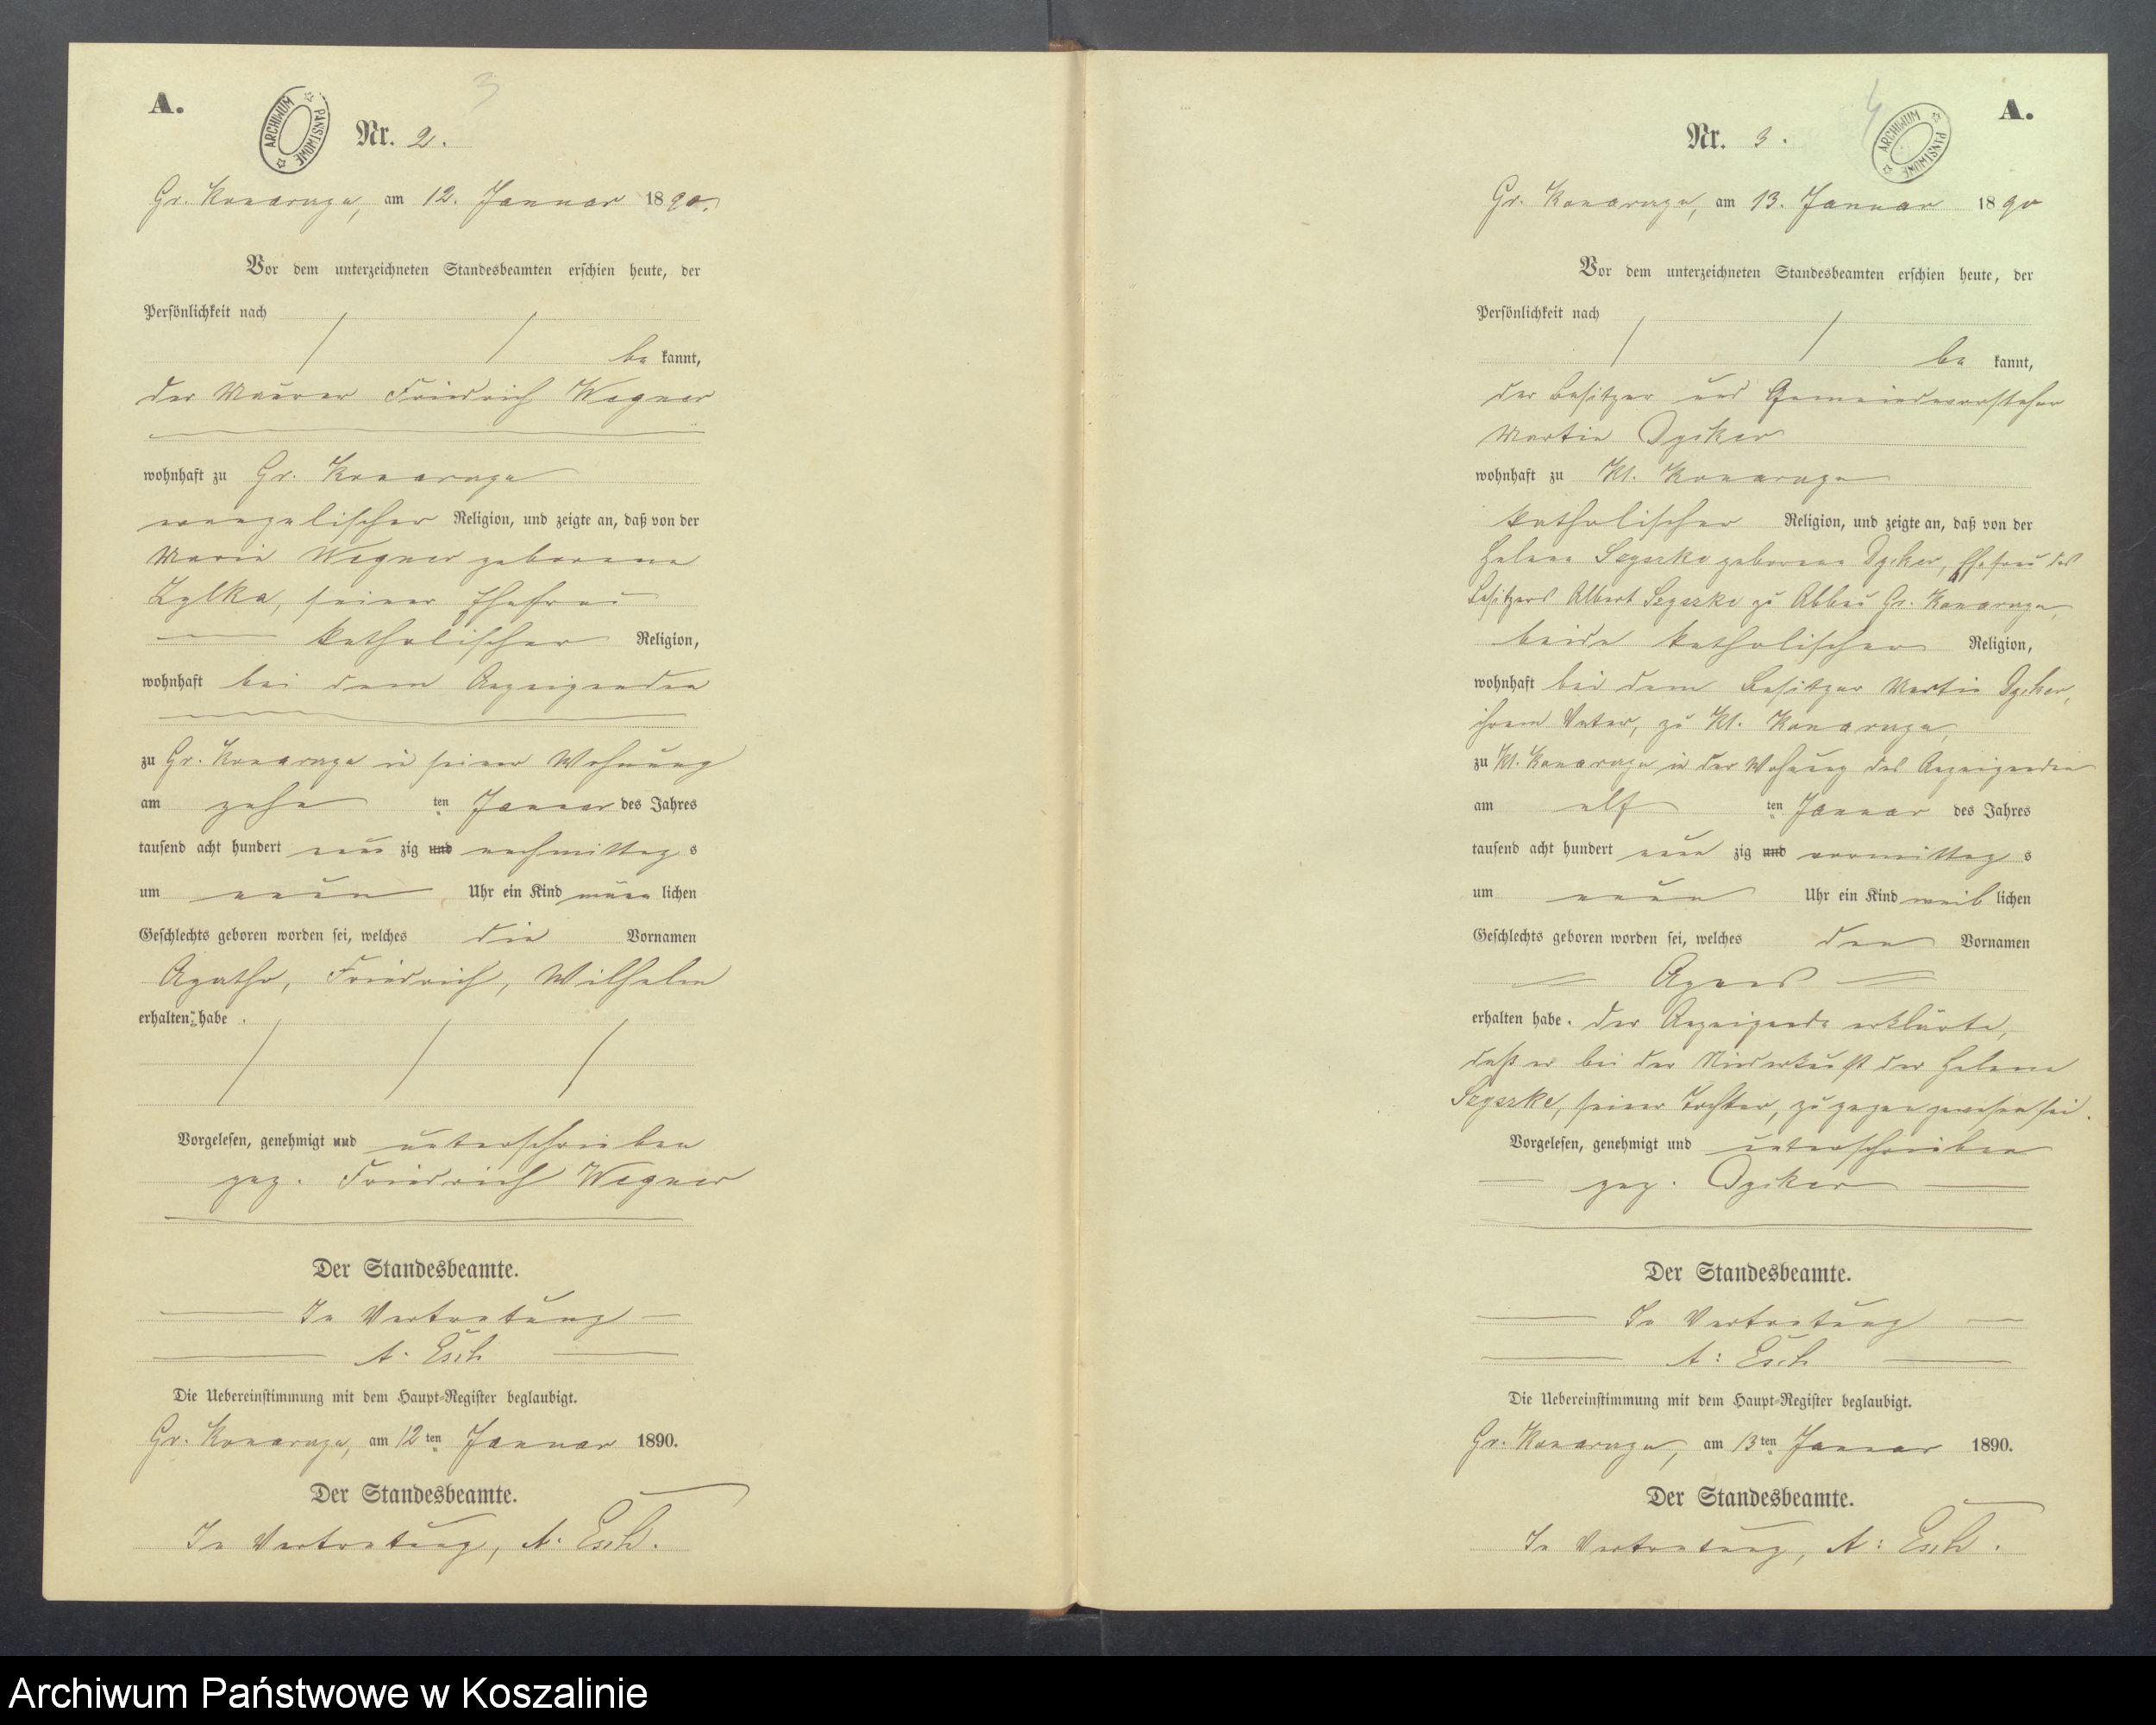 A.
3
ARCHIWUM PAŃSTWOWE
Nr. 2.
Gr. Konarczyn, am 12. Januar 1890.
Vor dem unterzeichneten Standesbeamten erschien heute, der
Persönlichkeit nach
be kannt,
der Maurer Friedrich Wegner
wohnhaft zu Gr. Konarczyn
evangelischer Religion, und zeigte an, daß von der
Marie Wegner geborene
Zylka, seiner Ehefrau
katholischer Religion,
wohnhaft bei dem Anzeigenden
zu Gr. Konarczyn in seiner Wohnung
am zehn ten Januar des Jahres
tausend acht hundert neun zig und nachmittag s
um neun Uhr ein Kind männ lichen
Geschlechts geboren worden sei, welches die Vornamen
Friedrich, Wilhelm
erhalten habe.
Vorgelesen, genehmigt und unterschrieben
gez. Friedrich Wegner
Der Standesbeamte.
In Vertretung
A. Esch
Die Uebereinstimmung mit dem Haupt-Register beglaubigt.
Gr. Konarczyn, am 12ten Januar 1890.
Der Standesbeamte.
In Vertretung, A. Esch.
4
A.
ARCHIWUM PAŃSTWOWE
Nr. 3.
Gr. Konarczyn, am 13. Januar 1890
Vor dem unterzeichneten Standesbeamten erschien heute, der
Persönlichkeit nach
be kannt,
der Besitzer und Gemeindevorsteher
Martin
wohnhaft zu Kl. Konarczyn
katholischer Religion, und zeigte an, daß von der
Helene geborene Ehefrau des
Besitzers Albert zu Abbau Gr. Konarczyn,
beide katholischer Religion,
wohnhaft bei dem Besitzer Martin
ihrem Vater, zu Kl. Konarczyn,
zu Kl. Konarczyn in der Wohnung des Anzeigenden
am elf ten Januar des Jahres
tausend acht hundert neun zig und vormittag s
um neun Uhr ein Kind weib lichen
Geschlechts geboren worden sei, welches den Vornamen
Agnes
erhalten habe. Der Anzeigende erklärte,
daß er bei der Niederkunft der Helene
seiner Tochter, zugegen gewesen sei.
Vorgelesen, genehmigt und unterschrieben
gez.
Der Standesbeamte.
In Vertretung
A: Esch
Die Uebereinstimmung mit dem Haupt-Register beglaubigt.
Gr. Konarczyn, am 13ten Januar 1890.
Der Standesbeamte.
In Vertretung, A: Esch.
Archiwum Państwowe w Koszalinie